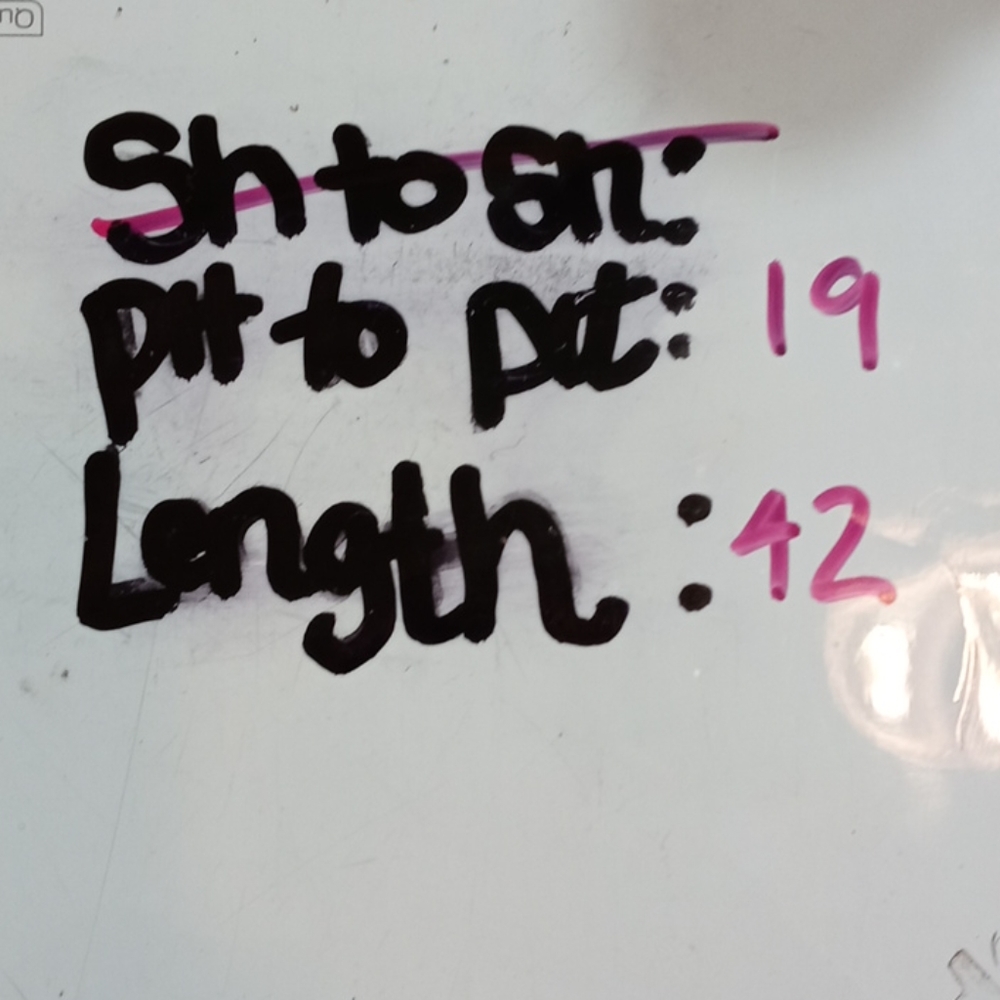 Sh to Sh:
pit to pit: 19
Length : 42